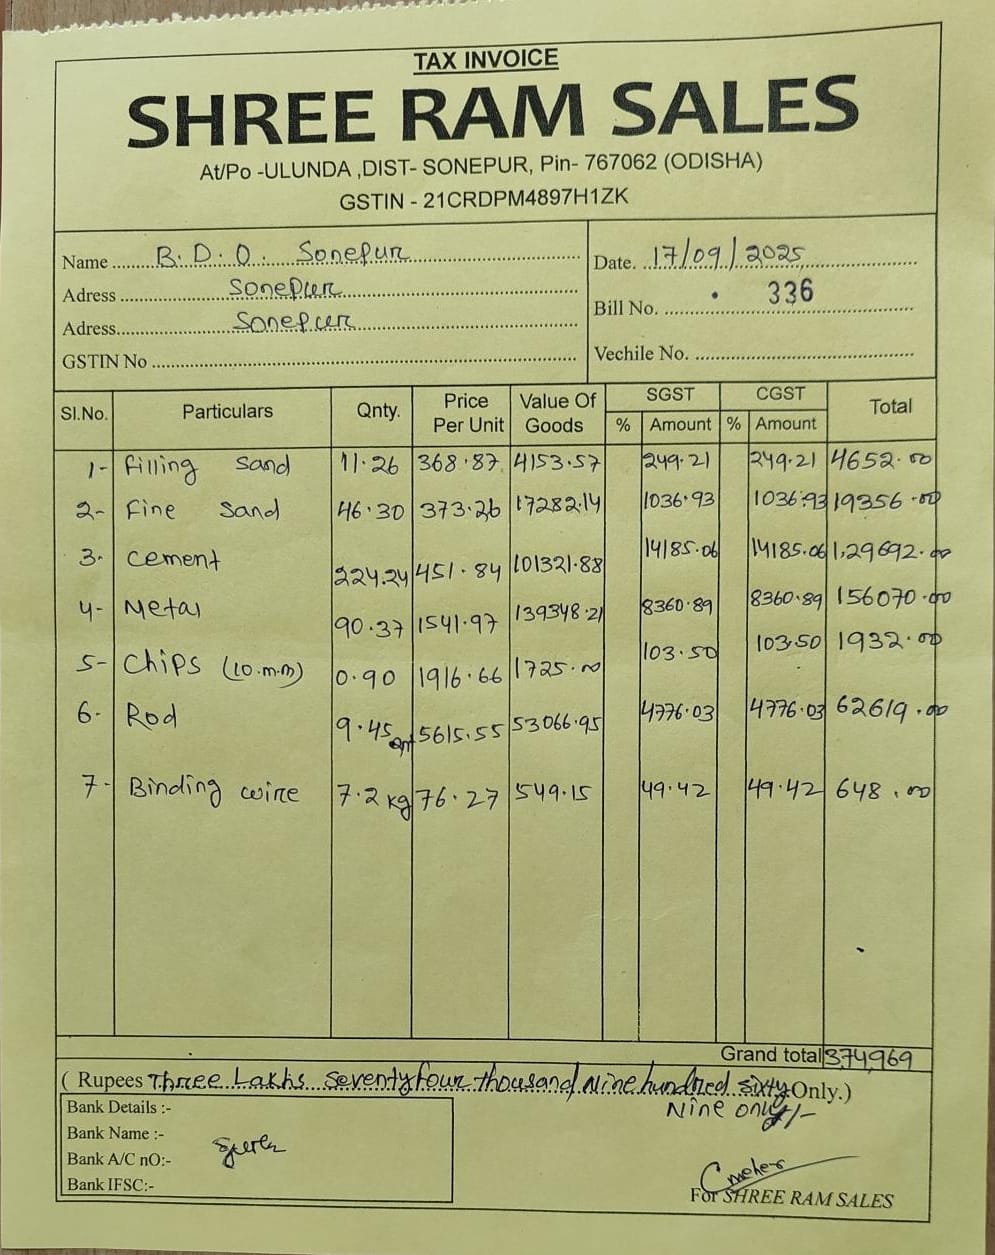 TAX INVOICE
SHREE RAM SALES
At/Po -ULUNDA ,DIST- SONEPUR, Pin- 767062 (ODISHA)
GSTIN - 21CRDPM4897H1ZK
Name B.D.O. Sonepur
Date. 17/09/2025
Adress Sonepur
Bill No. 336
Adress Sonepur
GSTIN No
Vechile No.
Sl.No. Particulars Qnty. Price Per Unit Value Of Goods SGST % Amount CGST % Amount Total
1- Filling Sand 11.26 368.87 4153.57 249.21 249.21 4652.00
2- Fine Sand 46.30 373.26 17282.14 1036.93 1036.93 19356.00
3- Cement 224.24 451.84 101321.88 14185.06 14185.06 1,29692.00
4- Metal 90.37 1541.97 139348.21 8360.89 8360.89 156070.00
5- Chips (10.m.m) 0.90 1916.66 1725.00 103.50 103.50 1932.00
6- Rod 9.45 qnt 5615.55 53066.95 4776.03 4776.03 62619.00
7- Binding wire 7.2 kg 76.27 549.15 49.42 49.42 648.00
Grand total 374,969
( Rupees Three Lakhs Seventyfour thousand, Nine hundred sixty Only.)
Nine only/-
Bank Details :-
Bank Name :-
Bank A/C nO:-
Bank IFSC:-
Cmeher
For SHREE RAM SALES